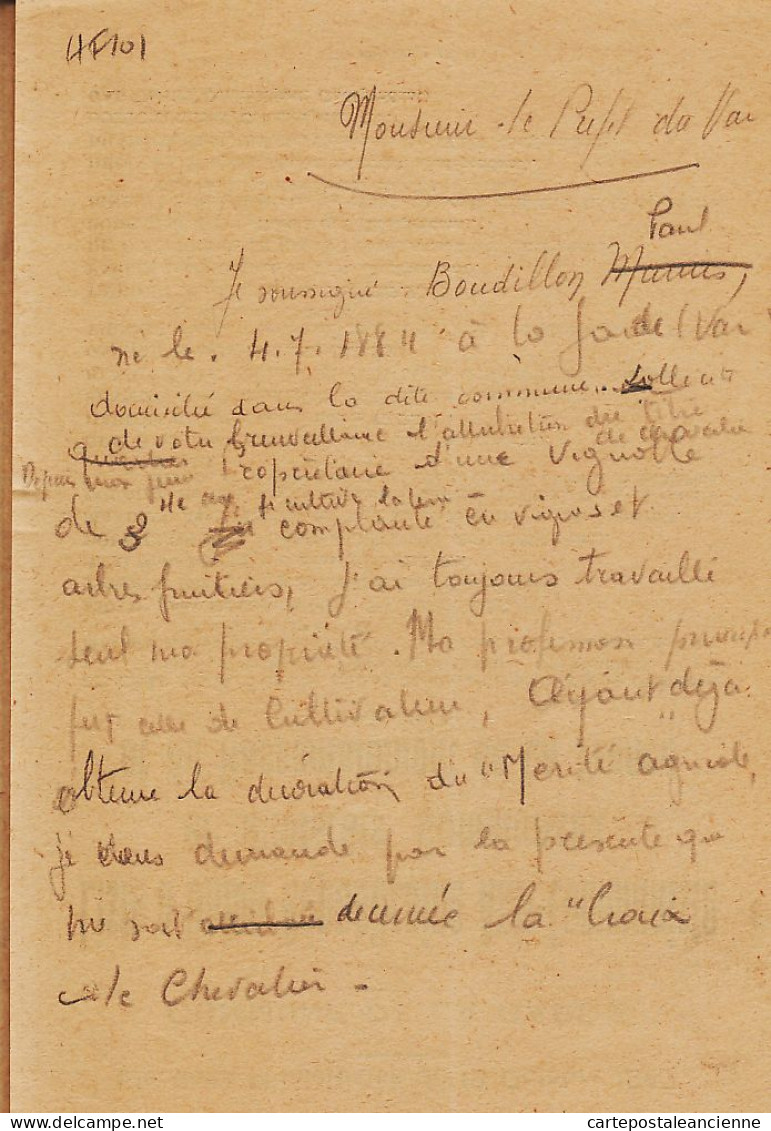 4F101
Monsieur le Préfet du Var
Paul
Je soussigné Boudillon
né le . 4.7.1884 à la Garde (Var
domicilié dans la dite commune.
de votre Bienveillance l'attribution du titre
de chevalier
Depuis mon jeune
propriétaire d'une vignoble
de 3 complanté en vignes et
arbres fruitiers, j'ai toujours travaillé
seul ma propriété. Ma profession
fut celle de Cultivateur, Ayant déjà
obtenu la décoration du "Mérite agricole,
je vous demande par la présente qui
me soit décernée la "Croix
de Chevalier -
cartepostaleancienne.com